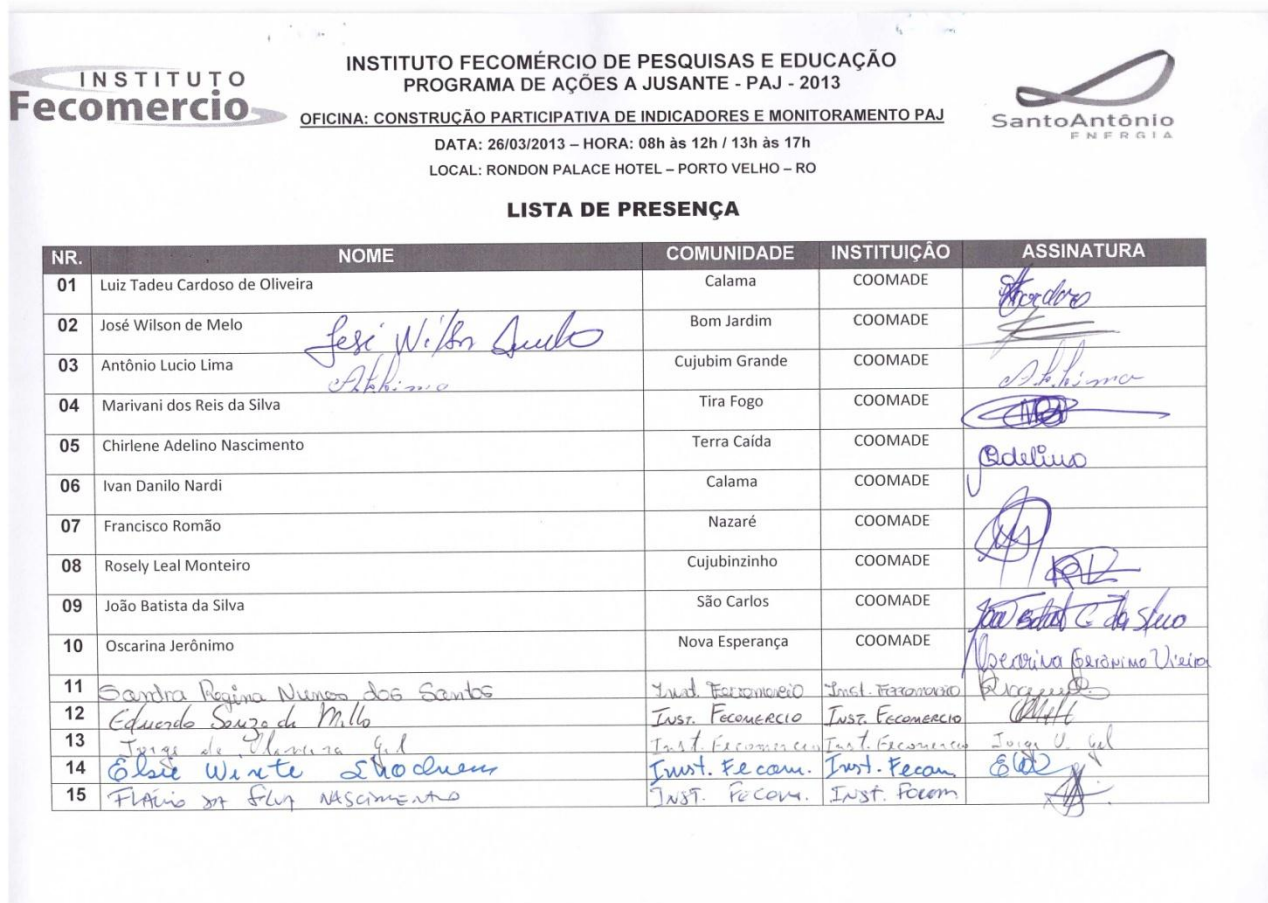 INSTITUTO
Fecomercio
INSTITUTO FECOMÉRCIO DE PESQUISAS E EDUCAÇÃO
PROGRAMA DE AÇÕES A JUSANTE - PAJ - 2013
OFICINA: CONSTRUÇÃO PARTICIPATIVA DE INDICADORES E MONITORAMENTO PAJ
DATA: 26/03/2013 – HORA: 08h às 12h / 13h às 17h
LOCAL: RONDON PALACE HOTEL – PORTO VELHO – RO
SantoAntônio
ENERGIA
LISTA DE PRESENÇA
NR. NOME COMUNIDADE INSTITUIÇÃO ASSINATURA
01 Luiz Tadeu Cardoso de Oliveira Calama COOMADE
02 José Wilson de Melo Bom Jardim COOMADE
03 Antônio Lucio Lima Cujubim Grande COOMADE
04 Marivani dos Reis da Silva Tira Fogo COOMADE
05 Chirlene Adelino Nascimento Terra Caída COOMADE Adelino
06 Ivan Danilo Nardi Calama COOMADE
07 Francisco Romão Nazaré COOMADE
08 Rosely Leal Monteiro Cujubinzinho COOMADE
09 João Batista da Silva São Carlos COOMADE
10 Oscarina Jerônimo Nova Esperança COOMADE Oscarina Gerônimo Vieira
11 Sandra Regina Nunes dos Santos Inst. Fecomercio Inst. Fecomercio
12 Eduardo Souza de Mello INST. FECOMERCIO INST. FECOMERCIO
13 Jorge de Gel Inst. Fecomercio Inst. Fecomercio Jorge Gel
14 Elsie Inst. Fecom. Inst. Fecom
15 FLÁVIO DA SILVA NASCIMENTO INST. FECOM. INST. FECOM